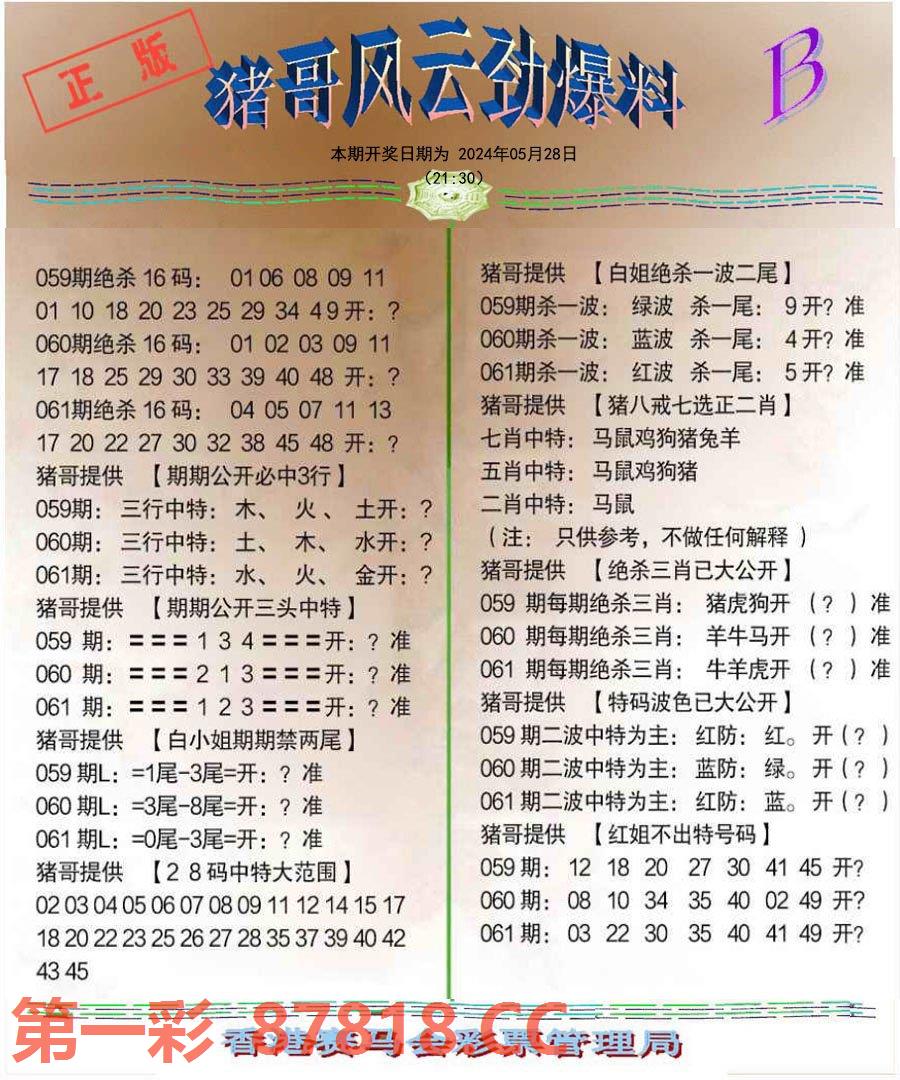 正版
猪哥风云劲爆料
B
本期开奖日期为 2024年05月28日
(21:30)
059期绝杀 16 码： 01 06 08 09 11
01 10 18 20 23 25 29 34 49 开：?
060期绝杀 16 码： 01 02 03 09 11
17 18 25 29 30 33 39 40 48 开：?
061期绝杀 16 码： 04 05 07 11 13
17 20 22 27 30 32 38 45 48 开：?
猪哥提供 【期期公开必中3行】
059期： 三行中特： 木、 火、 土开：?
060期： 三行中特： 土、 木、 水开：?
061期： 三行中特： 水、 火、 金开：?
猪哥提供 【期期公开三头中特】
059 期：=== 1 3 4 ===开：? 准
060 期：=== 2 1 3 ===开：? 准
061 期：=== 1 2 3 ===开：? 准
猪哥提供 【白小姐期期禁两尾】
059 期L：=1尾-3尾=开：? 准
060 期L：=3尾-8尾=开：? 准
061 期L：=0尾-3尾=开：? 准
猪哥提供 【28码中特大范围】
02 03 04 05 06 07 08 09 11 12 14 15 17
18 20 22 23 25 26 27 28 35 37 39 40 42
43 45
猪哥提供 【白姐绝杀一波二尾】
059期杀一波： 绿波 杀一尾： 9 开? 准
060期杀一波： 蓝波 杀一尾： 4 开? 准
061期杀一波： 红波 杀一尾： 5 开? 准
猪哥提供 【猪八戒七选正二肖】
七肖中特： 马鼠鸡狗猪兔羊
五肖中特： 马鼠鸡狗猪
二肖中特： 马鼠
（注： 只供参考，不做任何解释 ）
猪哥提供 【绝杀三肖已大公开】
059 期每期绝杀三肖： 猪虎狗开 （? ）准
060 期每期绝杀三肖： 羊牛马开 （? ）准
061 期每期绝杀三肖： 牛羊虎开 （? ）准
猪哥提供 【特码波色已大公开】
059 期二波中特为主： 红防：红。 开（? ）
060 期二波中特为主： 蓝防：绿。 开（? ）
061 期二波中特为主： 红防：蓝。 开（? ）
猪哥提供 【红姐不出特号码】
059 期： 12 18 20 27 30 41 45 开?
060 期： 08 10 34 35 40 02 49 开?
061 期： 03 22 30 35 40 41 49 开?
第一彩 87818.CC
香港赛马会彩票管理局